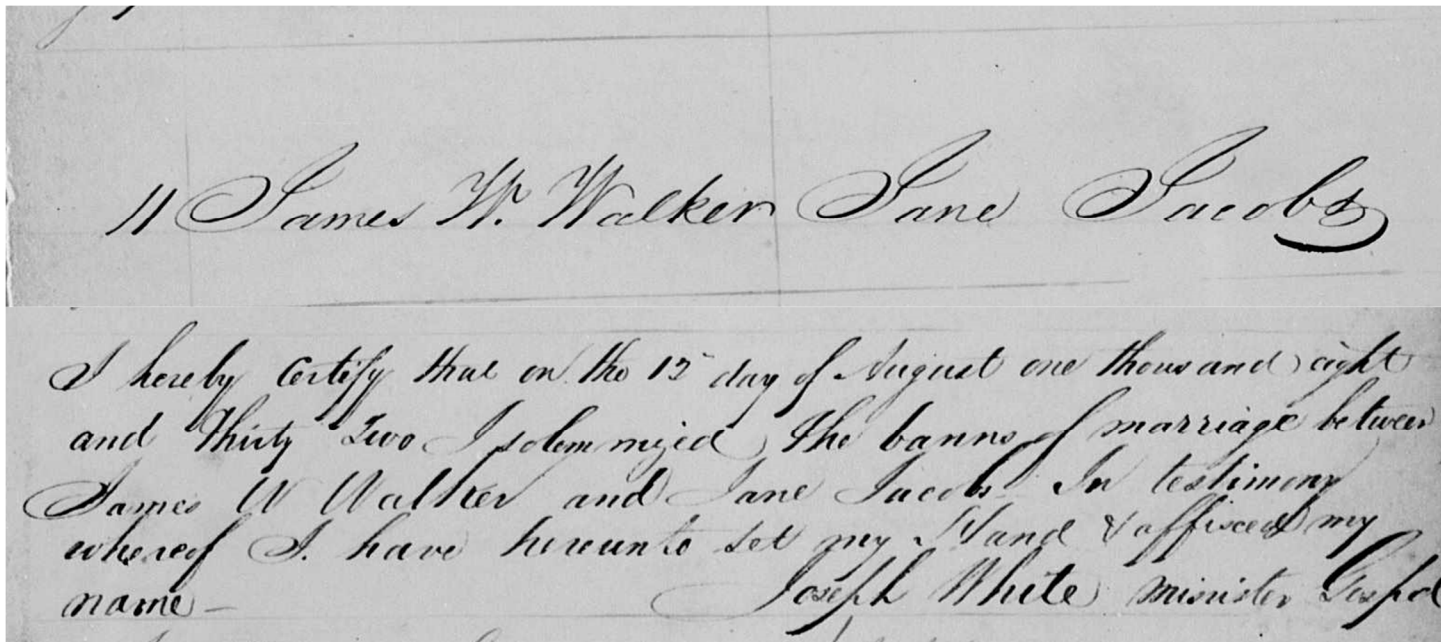 11 James W. Walker Jane Jacobs
I hereby certify that on the 12 day of August one thousand eight
and Thirty Two I solemnized the banns of marriage between
James W Walker and Jane Jacobs In testimony
whereof I have hereunto set my Hand & affixed my
name — Joseph White minister Gospel